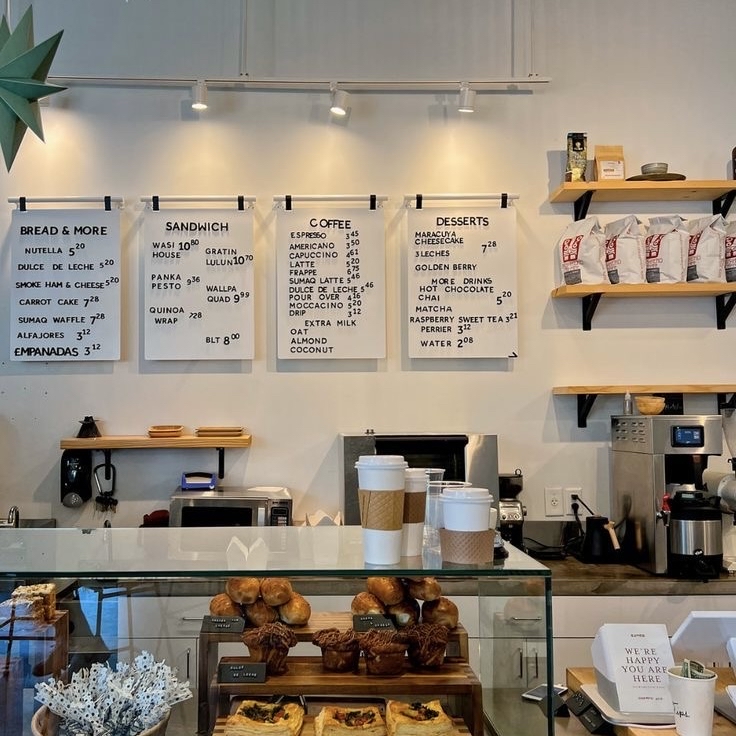 BREAD & MORE
NUTELLA 5.20
DULCE DE LECHE 5.20
SMOKE HAM & CHEESE 5.20
CARROT CAKE 7.28
SUMAQ WAFFLE 7.28
ALFAJORES 3.12
EMPANADAS 3.12
SANDWICH
WASI HOUSE 10.80
GRATIN LULUN 10.70
PANKA PESTO 9.36
WALLPA QUAD 9.99
QUINOA WRAP 7.28
BLT 8.00
COFFEE
ESPRESSO 3.45
AMERICANO 3.50
CAPUCCINO 4.61
LATTE 5.20
FRAPPE 6.75
SUMAQ LATTE 5.46
DULCE DE LECHE 5.46
POUR OVER 4.16
MOCCACINO 5.20
DRIP 3.12
EXTRA MILK
OAT
ALMOND
COCONUT
DESSERTS
MARACUYA
CHEESECAKE 7.28
3 LECHES
GOLDEN BERRY
MORE DRINKS
HOT CHOCOLATE
CHAI 5.20
MATCHA
RASPBERRY SWEET TEA 3.21
PERRIER 3.12
WATER 2.08
WE'RE
HAPPY
YOU ARE
HERE